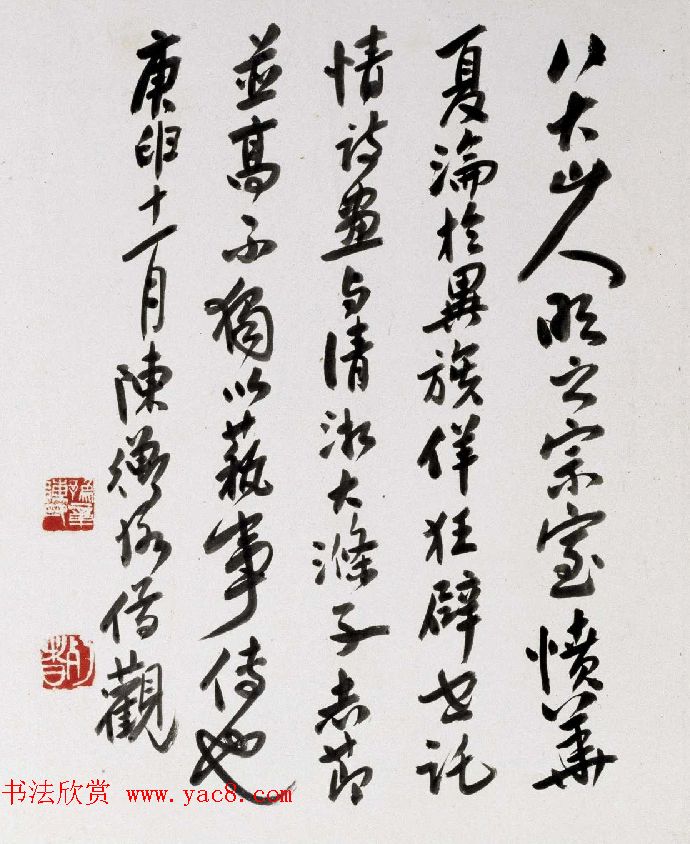 八大山人明之宗室憤華
夏淪於異族佯狂辟世託
情詩畫与清湘大滌子志節
並高不獨以蓺事傳也
庚申十一月陳衡恪借觀
书法欣赏 www.yac8.com